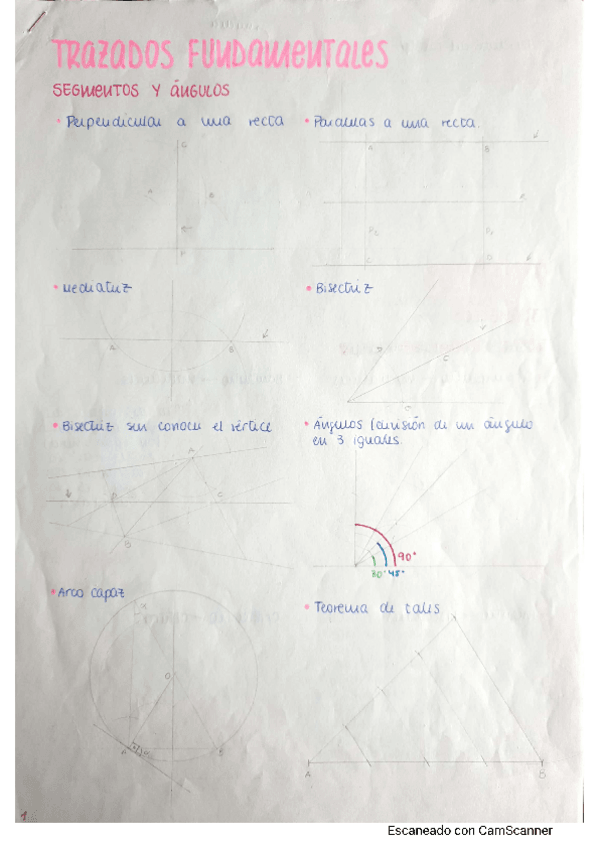 TRAZADOS FUNDAMENTALES
SEGMENTOS Y ÁNGULOS
• Perpendicular a una recta
• Paralelas a una recta.
G
A
B
A
B
R
P
C
D
• Mediatriz
• Bisectriz
A
B
• Bisectriz sin conocer el vértice
• Ángulos (división de un ángulo
en 3 iguales.
A
C
90°
30° 45°
• Arco capaz
• Teorema de tales
O
A
B
A
B
1
Escaneado con CamScanner